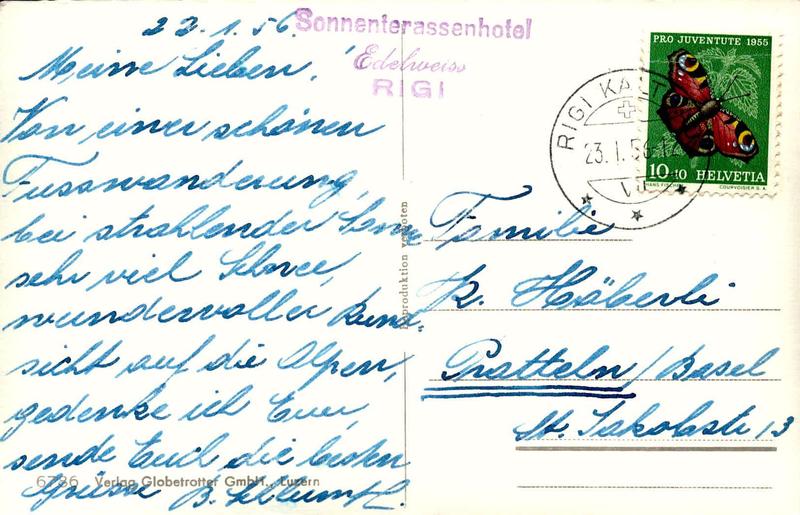 22.1.56.
Meine Lieben!
Von einer schönen
Fusswanderung,
bei strahlender Sonne
sehr viel Schnee,
wundervoller Rund
sicht auf die Alpen,
gedenke ich Euer,
sende Euch die besten
Grüsse B.
6736 Verlag Globetrotter GmbH., Luzern
Sonnenterassenhotel
Edelweiss
RIGI
Reproduktion verboten
RIGI KALT
23.1.56
PRO JUVENTUTE 1955
10+10 HELVETIA
HANS FISCHER COURVOISIER S.A.
Familie
K. Häberli
Pratteln/Basel
St. Jakobstr 13